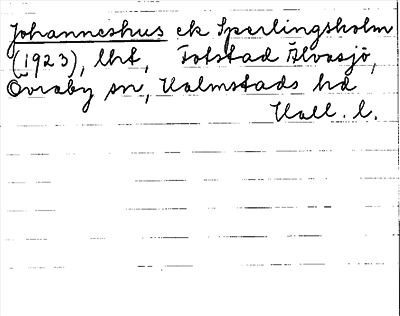 Johanneshus ek Sperlingsholm
(1923), lht, Tolstad Älvasjö,
Övraby sn, Halmstads hd
Hall. l.